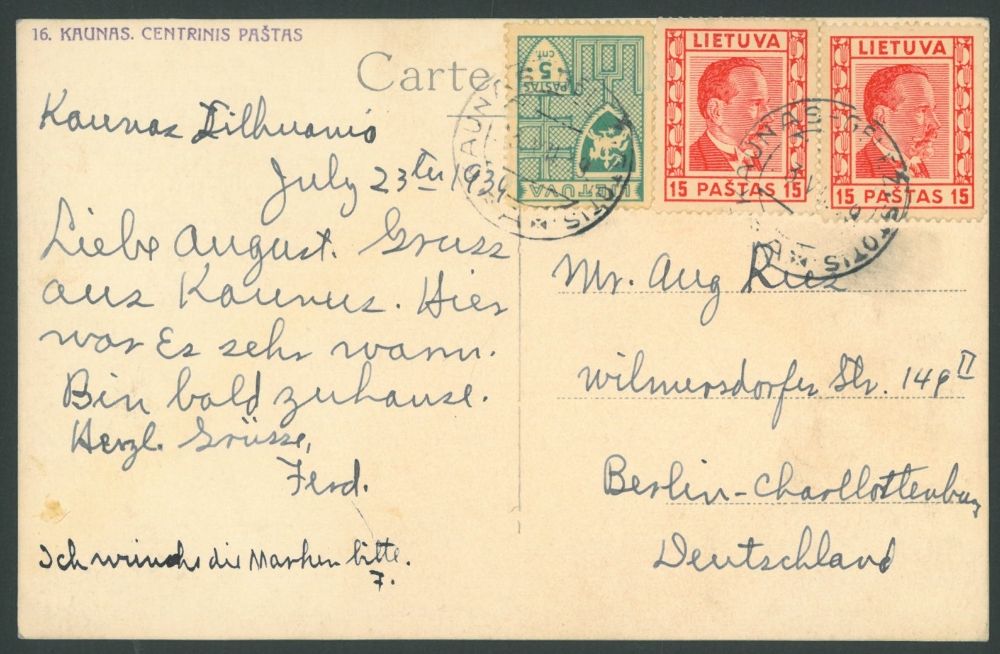 16. KAUNAS. CENTRINIS PAŠTAS
Carte
PAŠTAS
5
CNT.
LIETUVA
LIETUVA
15 PAŠTAS 15
LIETUVA
15 PAŠTAS 15
Kaunas Lithuania
July 23ten 1939
Liebe August. Gruss
aus Kaunus. Hier
war Es sehr warm.
Bin bald zuhause.
Herzl. Grüsse,
Ferd.
Ich wünsche die Marken bitte.
F.
Mr. Aug
Wilmersdorfer Str. 149 II
Berlin-Charllottenburg
Deutschland